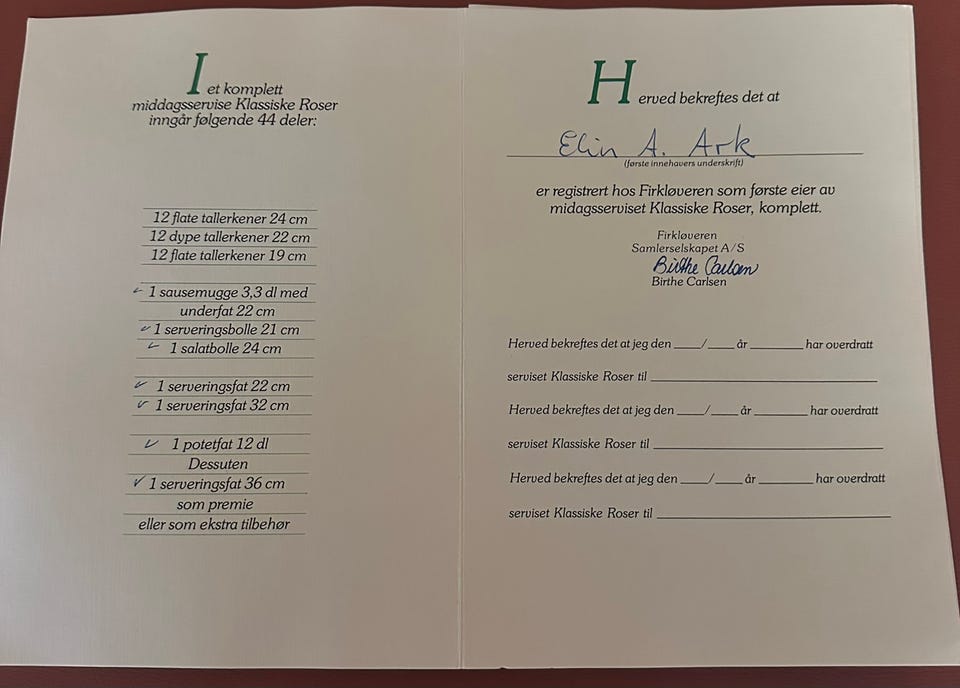 I et komplett
middagsservise Klassiske Roser
inngår følgende 44 deler:
12 flate tallerkener 24 cm
12 dype tallerkener 22 cm
12 flate tallerkener 19 cm
✓ 1 sausemugge 3,3 dl med
underfat 22 cm
✓ 1 serveringsbolle 21 cm
✓ 1 salatbolle 24 cm
✓ 1 serveringsfat 22 cm
✓ 1 serveringsfat 32 cm
✓ 1 potetfat 12 dl
Dessuten
✓ 1 serveringsfat 36 cm
som premie
eller som ekstra tilbehør
Herved bekreftes det at
Elin A. Ark
(første innehavers underskrift)
er registrert hos Firkløveren som første eier av
midagsserviset Klassiske Roser, komplett.
Firkløveren
Samlerselskapet A/S
Birthe Carlsen
Birthe Carlsen
Herved bekreftes det at jeg den ____/____ år ________ har overdratt
serviset Klassiske Roser til ________________
Herved bekreftes det at jeg den ____/____ år ________ har overdratt
serviset Klassiske Roser til ________________
Herved bekreftes det at jeg den ____/____ år ________ har overdratt
serviset Klassiske Roser til ________________